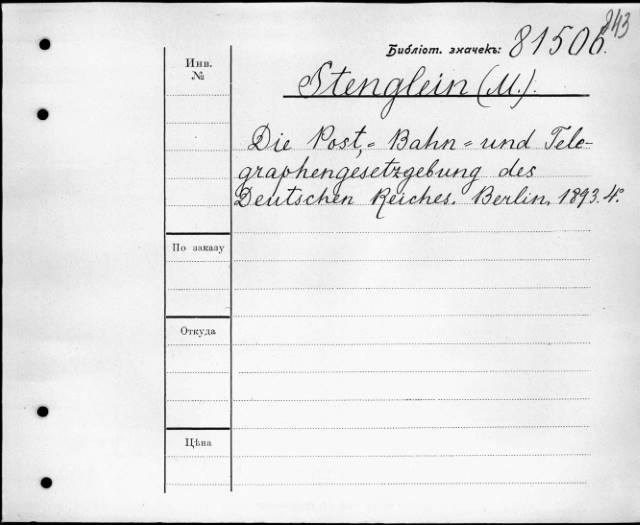 843
Библіот. значекъ: 81506.
Инв.
№
Stenglein (M.).
Die Post,= Bahn= und Tele-
graphengesetzgebung des
Deutschen Reiches. Berlin. 1893. 4°.
По заказу
Откуда
Цѣна